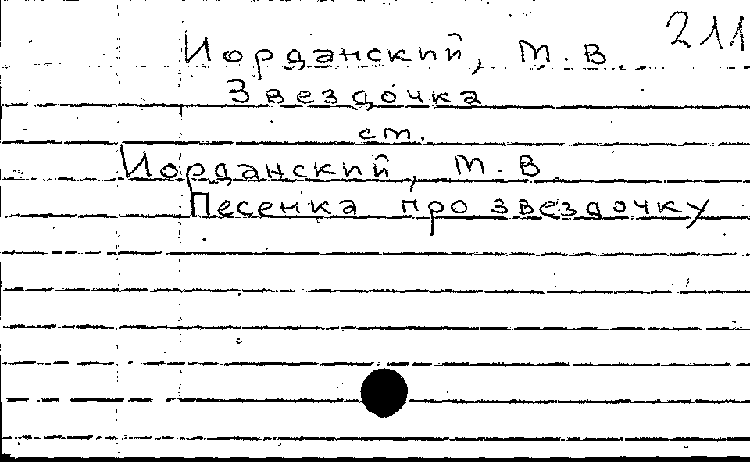 211
Иорданский, М. В.
Звездочка
см.
Иорданский, М. В.
Песенка про звездочку